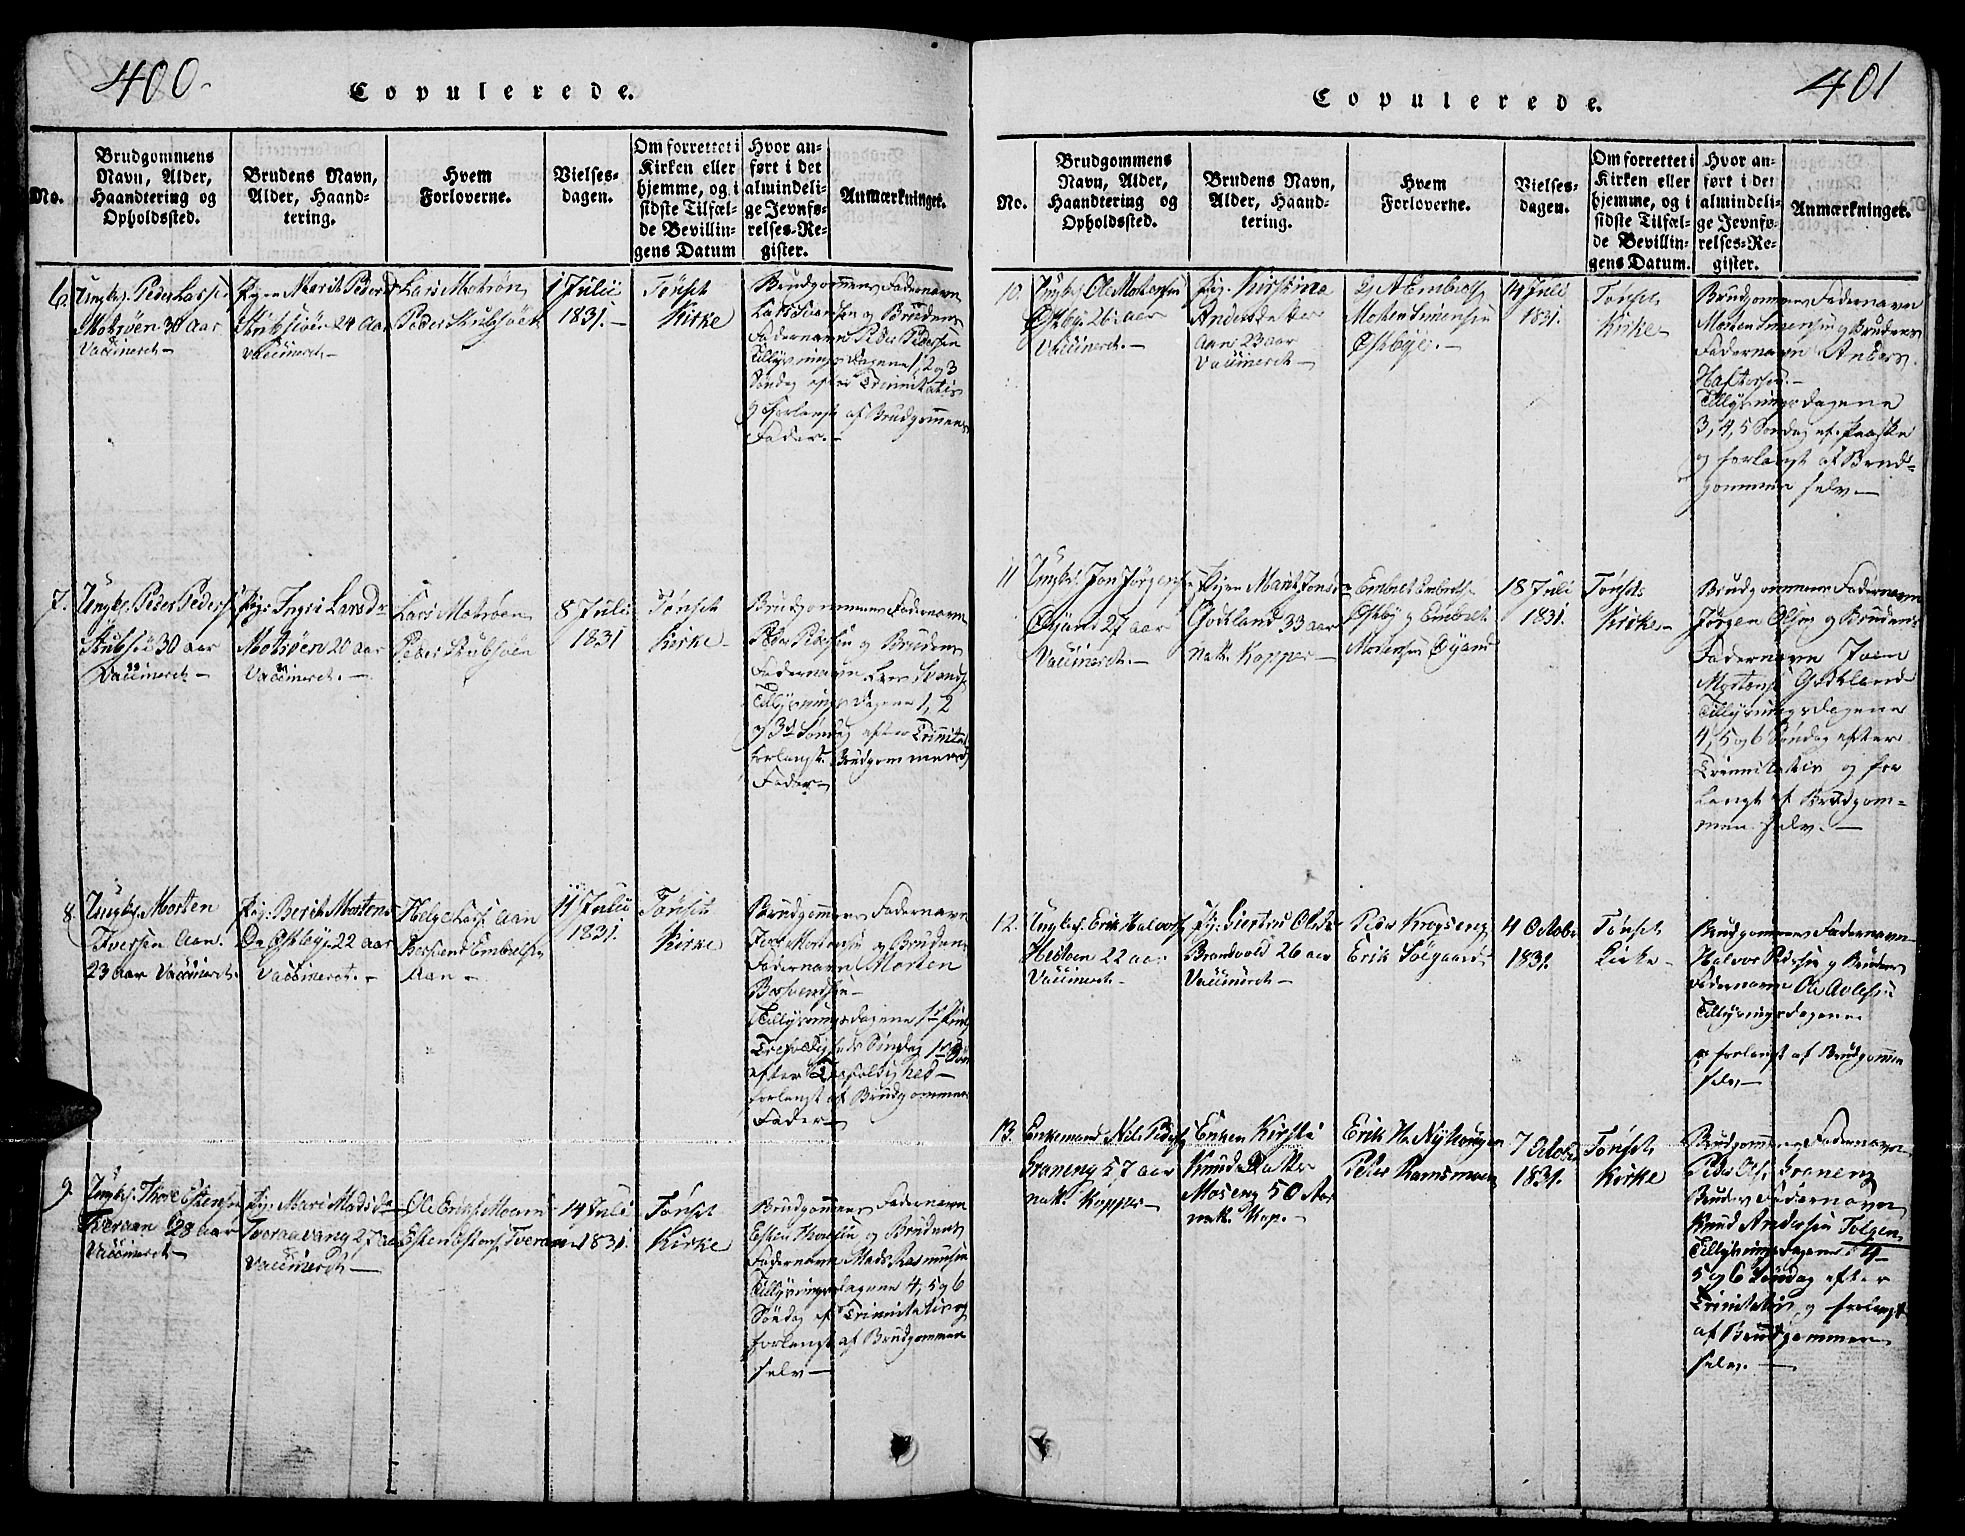 400-
Copulerede.
No.
Brudgommens
Navn, Alder,
Haandtering og
Opholdssted.
Brudens Navn,
Alder, Haand-
tering.
Hvem
Forloverne.
Vielses-
dagen.
Om forrettet i
Kirken eller
hjemme, og i
sidste Tilfæl-
de Bevillin-
gens Datum
Hvor an-
ført i det
almindeli-
ge Jevnfø-
relses-Re-
gister.
Anmærkninger.
6.
Ungks. Peder Larss.
Motrøen 30 aar
Vaccineret-
Pigen Marit Pedersd
Stubsiöen 24 Aar
Vaccineret-
Lars Motrøn
Peder Stubsöen
1 Julii
1831.-
Tønset
Kirke
Brudgommens Fadernavn
og Brudens
Fadernavn Peder Pedersen
Tillysnings Dagene 1, 2 og 3
Søndag efter Trinnitatis
og forlangt af Brudgommens
Fader.-
7.
Ungks. Peder Peders.
Stubsiö 30 aar
Vaccineret-
Pige Ingri Larsdr
Motrøen 20 aar
Vaccineret.-
Lars Motrøen
Peder Stubsöen
8 Juli
1831
Tønset
Kirke-
Brudgommens Fadernavn
Peder Pedersen og Brudens
Fadernavn Lars
Tillysnings Dagene 1, 2
og 3d Søndag efter Trinnitat
forlangt Brudgommens
Fader-
8.
Ungks. Morten
Iversen Aan.
23 aar Vaccineret.
Pig: Berit Mortens
Dr Østbye 22 aar
Vaccineret.-
Helge Lars. Aan
Bersvend Embretsen
Aan-
11 Julii
1831.
Tønset
Kirke
Brudgommens Fadernavn
Iver Mortensen og Brudens
Fadernavn Morten
Bersvendsen-
Tillysningsdagene
Trefoldigheds Søndag 1ste Søn
efter Trefoldighed-
forlangt af Brudgommens
Fader-
9.
Ungks. Thore Estensen
Tveraan 28 aar
Vaccineret-
Pig: Mari Madsdr
Tveraavang 27 aar
Vaccineret-
Ole Ericks. Moem
Esten Estens. Tveraaen
14 Juli
1831.
Tønset
Kirke
Brudgommens Fadernavn
Esten Thoresen og Brudens
Fadernavn Mads Rasmusen
Tillysningsdagene 4, 5 og 6
Søndag ef Trinnitatis og
forlangt af Brudgommen
selv-
401
Copulerede.
No.
Brudgommens
Navn, Alder,
Haandtering og
Opholdssted.
Brudens Navn,
Alder, Haand-
tering.
Hvem
Forloverne.
Vielses-
dagen.
Om forrettet i
Kirken eller
hjemme, og i
sidste Tilfæl-
de Bevillin-
gens Datum.
Hvor an-
ført i det
almindeli-
ge Jevnfø-
relses-Re-
gister.
Anmærkninger.
10.
Ungks. Ole Mortensen
Østbye 26 aar
Vaccineret.-
Pig. Kirstina
Andersdatter
Aan 23 aar
Vaccineret-
Embrets
Morten Simensen
Østbye.-
14 Juli
1831.
Tønset
Kirke-
Brudgommens Fadernavn
Morten Simensen og Brudens
Fadernavn Anders
Haftorsen.-
Tillysningsdagene
3, 4, 5 Søndag ef. Paaske
og forlangt af Brud-
gommen selv-
11
Ungks. Jon Jørgens.
Øyan 27 aar
Vaccineret.-
Pigen Marit Jonsdr
Godtland 33 aar
nat. Kopper-
Embret Embrets.
Østby og Embret
Mortensen Øyand
18 Juli
1831.
Tønset
Kirke-
Brudgommens Fadernavn
Jørgen Olsen og Brudens
Fadernavn Joen
Mortens. Godtland
Tillysningsdagene
4, 5 og 6 Søndag efter
Trinnitatis og for
langt af Brudgom-
men selv.-
12.
Ungks. Erik Halvors.
Hestøen 22 aar
Vaccineret-
Pig: Giertrud Olsdr
Brandvold 26 aar
Vaccineret-
Peder Krogseng
Erik Sølgaard
4 Octobr
1831.
Tønset
Kirke-
Brudgommens Fadernavn
Halvor Pedersen og Brudens
Fadernavn Ole
Tillysningsdagene
og forlangt af Brudgommen
selv-
13.
Enkemand Nils Peders.
Graneng 57 aar
nat. Kopper-
Enken Kirsti
Knudsdatter
Moseng 50 Aar
nat. Kop.-
Erik Nyhougen
Peder Ramsmoen
7 Octobr
1831.
Tønset
Kirke
Brudgommens Fadernavn
Peder Ols. Graneng
Brudens Fadernavn
Knud Andersen Tolgen
Tillysningsdagene 4
5 og 6 Søndag efter
Trinitatis og forlangt
af Brudgommen
selv.-